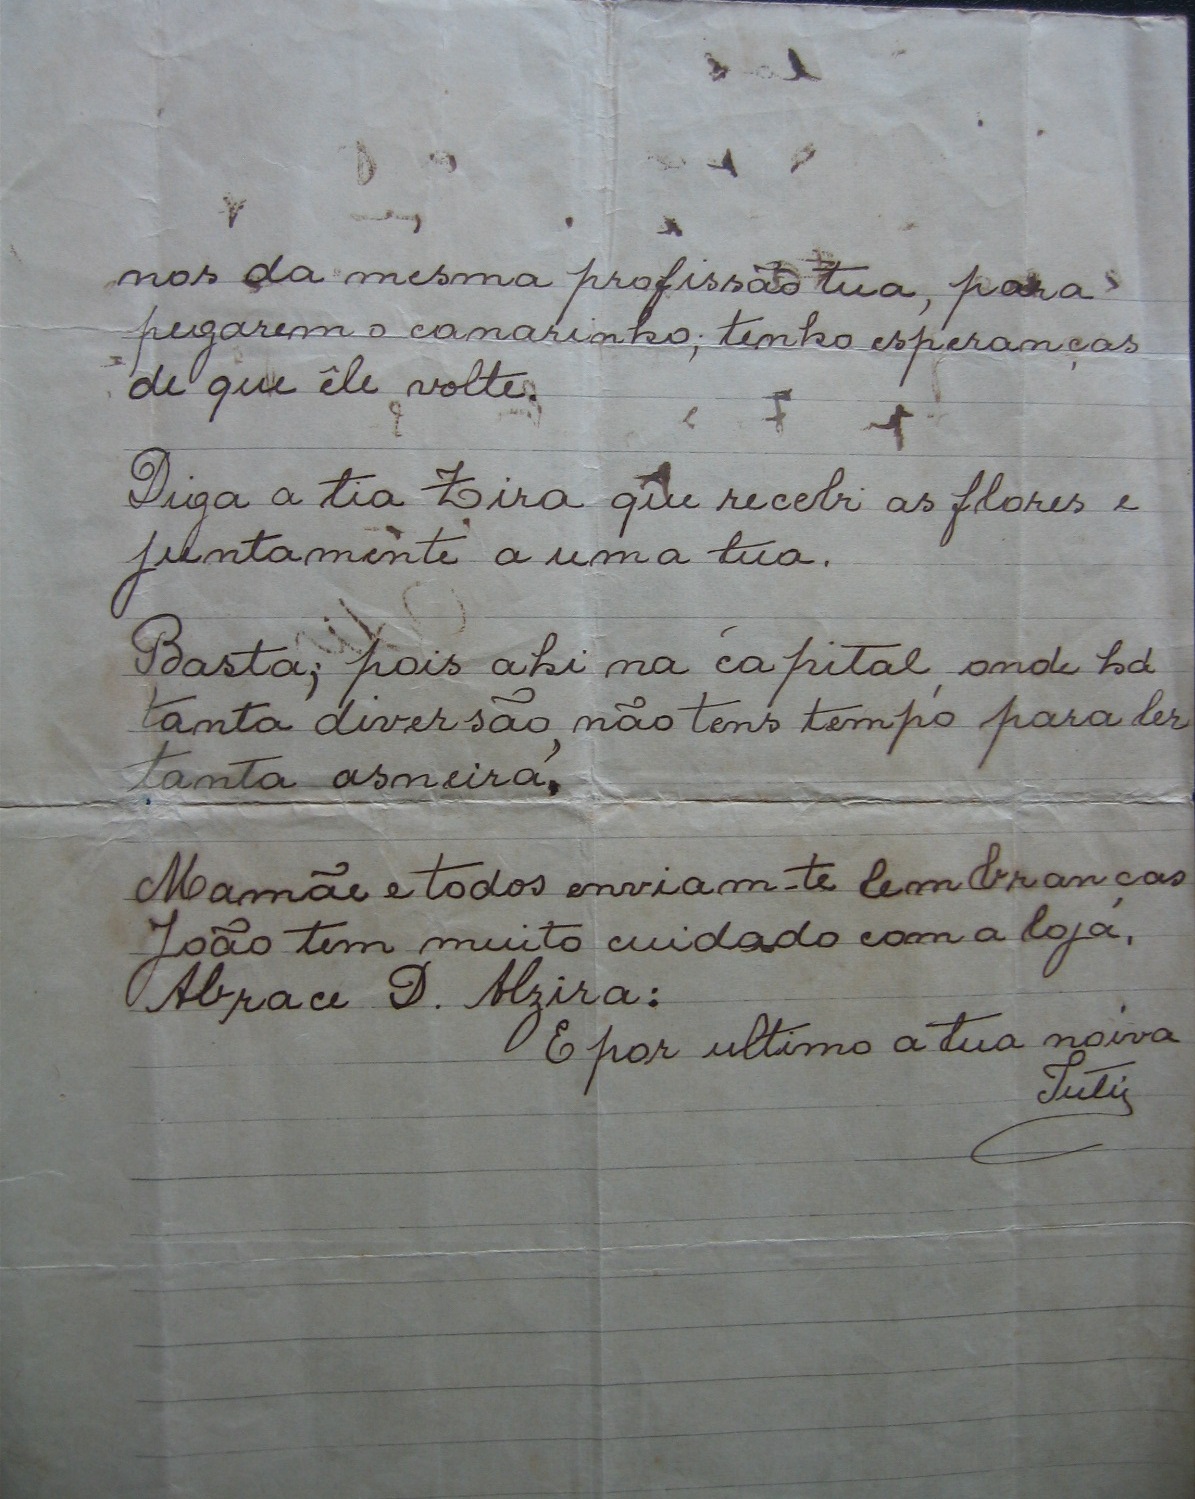 nos da mesma profissão tua, para
pegarem o canarinho; tenho esperanças
de que êle volte.
Diga a tia Zira que recebi as flores e
juntamente a uma tua.
Basta; pois ahi na capital, onde há
tanta diversão, não tens tempo para ler
tanta asneira.
Mamãe e todos enviam-te lembranças
João tem muito cuidado com a loja.
Abrace D. Alzira:
E por ultimo a tua noiva